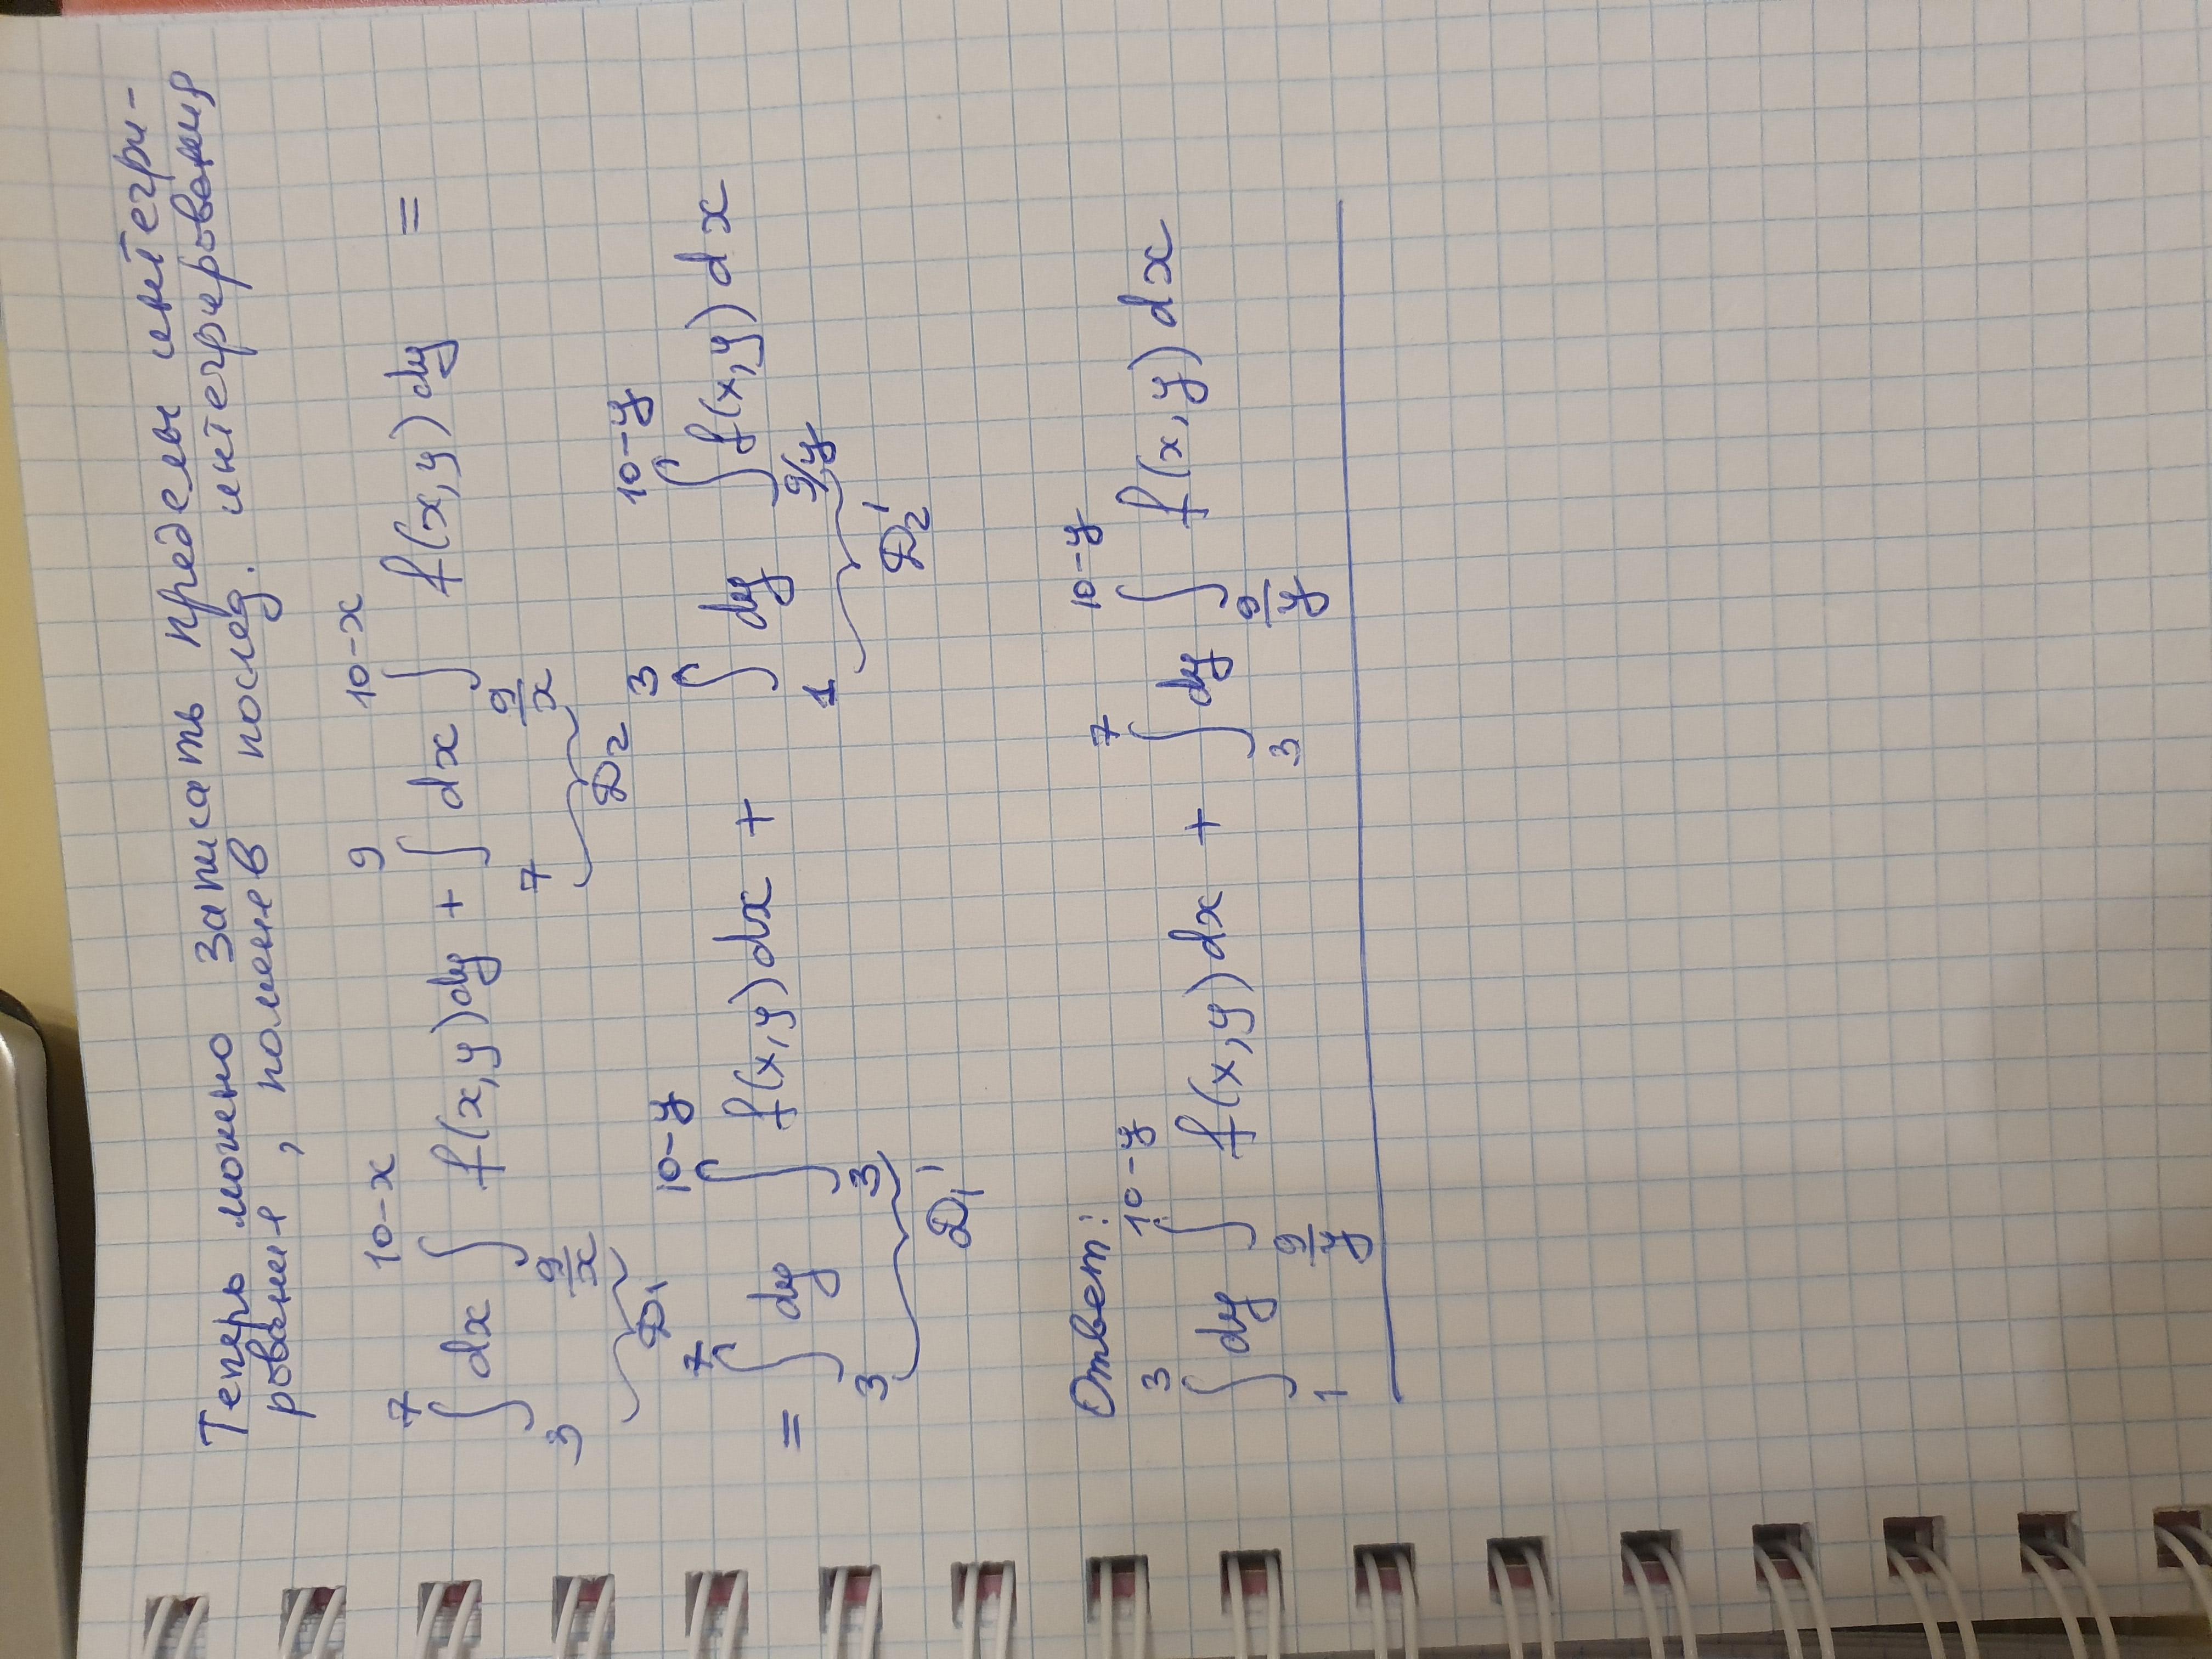 Теперь можно записать пределы интегри-
рования, поменяв послед. интегрирования
∫₃⁷ dx ∫_{9/x}^{10-x} f(x,y)dy + ∫₇⁹ dx ∫_{9/x}^{10-x} f(x,y)dy =
D₁ D₂
= ∫₃⁷ dy ∫₃^{10-y} f(x,y)dx + ∫₁³ dy ∫_{9/y}^{10-y} f(x,y)dx
D₁' D₂'
Ответ:
∫₁³ dy ∫_{9/y}^{10-y} f(x,y)dx + ∫₃⁷ dy ∫_{9/y}^{10-y} f(x,y)dx